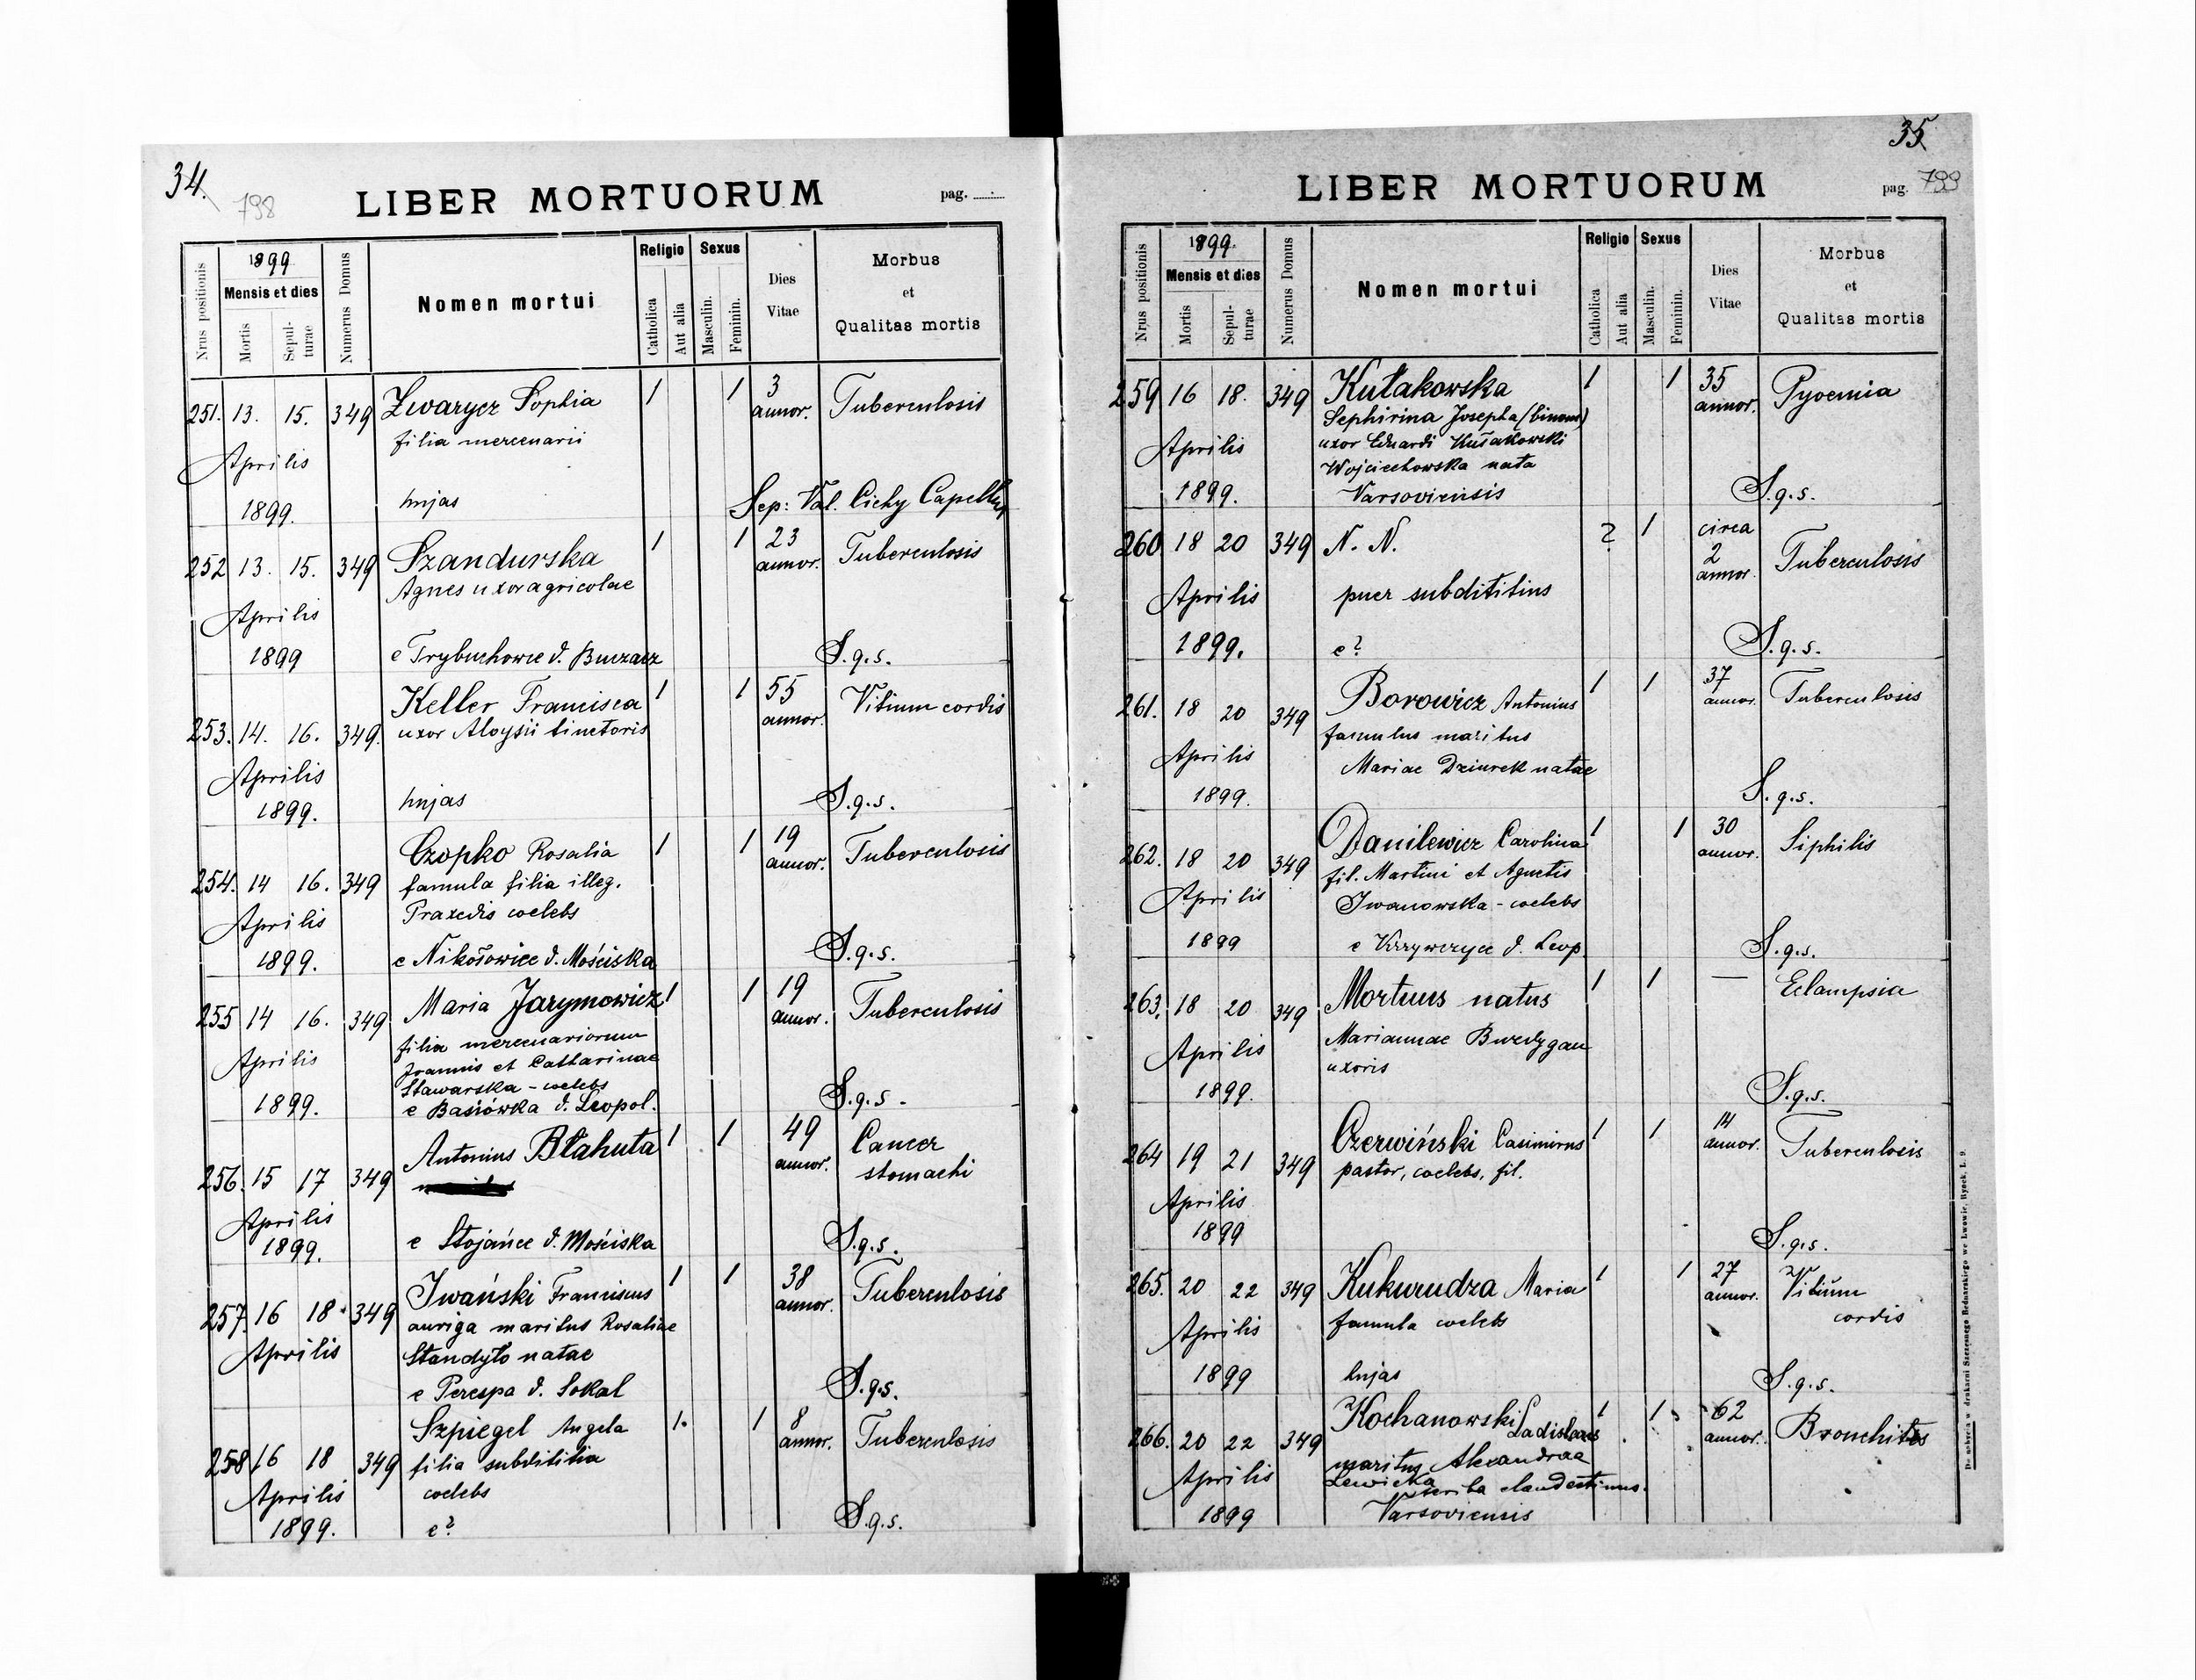 34.
798
LIBER MORTUORUM
pag.
Nrus positionis
1899
Mensis et dies
Mortis
Sepulturae
Numerus Domus
Nomen mortui
Religio
Catholica
Aut alia
Sexus
Masculin.
Feminin.
Dies Vitae
Morbus
et
Qualitas mortis
251. 13. 15. 349 Zwarycz Sophia 1 1 3 annor. Tuberculosis
filia mercenarii
Aprilis
1899. hujas Sep: Val. Cichy Capellus
252 13. 15. 349 Szandurska 1 1 23 annor. Tuberculosis
Agnes uxor agricolae
Aprilis
1899 e Trybuchowce d. Buczacz S.g.s.
253. 14. 16. 349. Keller Francisca 1 1 55 annor. Vitium cordis
uxor Aloysii tinctoris
Aprilis
1899. hujas S.g.s.
254. 14 16. 349 Czopko Rosalia 1 1 19 annor. Tuberculosis
famula filia illeg.
Aprilis Praxedis coelebs
1899. e Nikołowice d. Mościska S.g.s.
255 14 16. 349 Maria Jarymowicz 1 1 19 annor. Tuberculosis
filia mercenariorum
Aprilis Joannis et Catharinae
Stawarska - coelebs
1899. e Basiówka d. Leopol. S.g.s.
256. 15 17 349 Antonius Błahuta 1 1 49 annor. Cancer stomachi
Aprilis
1899. e Stojańce d. Mościska S.g.s.
257. 16 18. 349 Iwański Franciscus 1 1 38 annor. Tuberculosis
auriga maritus Rosaliae
Aprilis Standyło natae
e Perespa d. Sokal S.g.s.
258 16 18 349 Szpiegel Angela 1. 1 8 annor. Tuberculosis
filia subdititia
Aprilis coelebs
1899. e? S.g.s.
35
LIBER MORTUORUM
pag. 799
Nrus positionis
1899.
Mensis et dies
Mortis
Sepulturae
Numerus Domus
Nomen mortui
Religio
Catholica
Aut alia
Sexus
Masculin.
Feminin.
Dies Vitae
Morbus
et
Qualitas mortis
259 16 18. 349 Kułakowska 1 1 35 annor. Pyoemia
Sephirina Josepha (binom)
Aprilis uxor Eduardi Kułakowski
Wojciechowska nata
1899. Varsoviensis S.g.s.
260 18 20 349 N. N. ? 1 circa 2 annor. Tuberculosis
Aprilis puer subdititius
1899. e? S.g.s.
261. 18 20 349 Borowicz Antonius 1 1 37 annor. Tuberculosis
famulus maritus
Aprilis Mariae Dziurek natae
1899. S.g.s.
262. 18 20 349 Danilewicz Carolina 1 1 30 annor. Siphilis
fil. Martini et Agnetis
Aprilis Iwanowska - coelebs
1899 e Krzywczyce d. Leop. S.g.s.
263. 18 20 349 Mortuus natus 1 1 — Eclampsia
Aprilis Mariannae Burdygan
uxoris
1899. S.g.s.
264 19 21 349 Czerwiński Casimirus 1 1 14 annor. Tuberculosis
pastor, coelebs, fil.
Aprilis
1899 S.g.s.
265. 20 22 349 Kukurudza Maria 1 1 27 annor. Vitium cordis
Aprilis famula coelebs
1899 hujas S.g.s.
266. 20 22 349 Kochanowski Ladislaus 1 1 62 annor. Bronchites
maritus Alexandrae
Aprilis Lewicka
scriba clandestinus.
1899 Varsoviensis
De nabycia w drukarni Szczęsnego Bednarskiego we Lwowie, Rynek, L. 9.